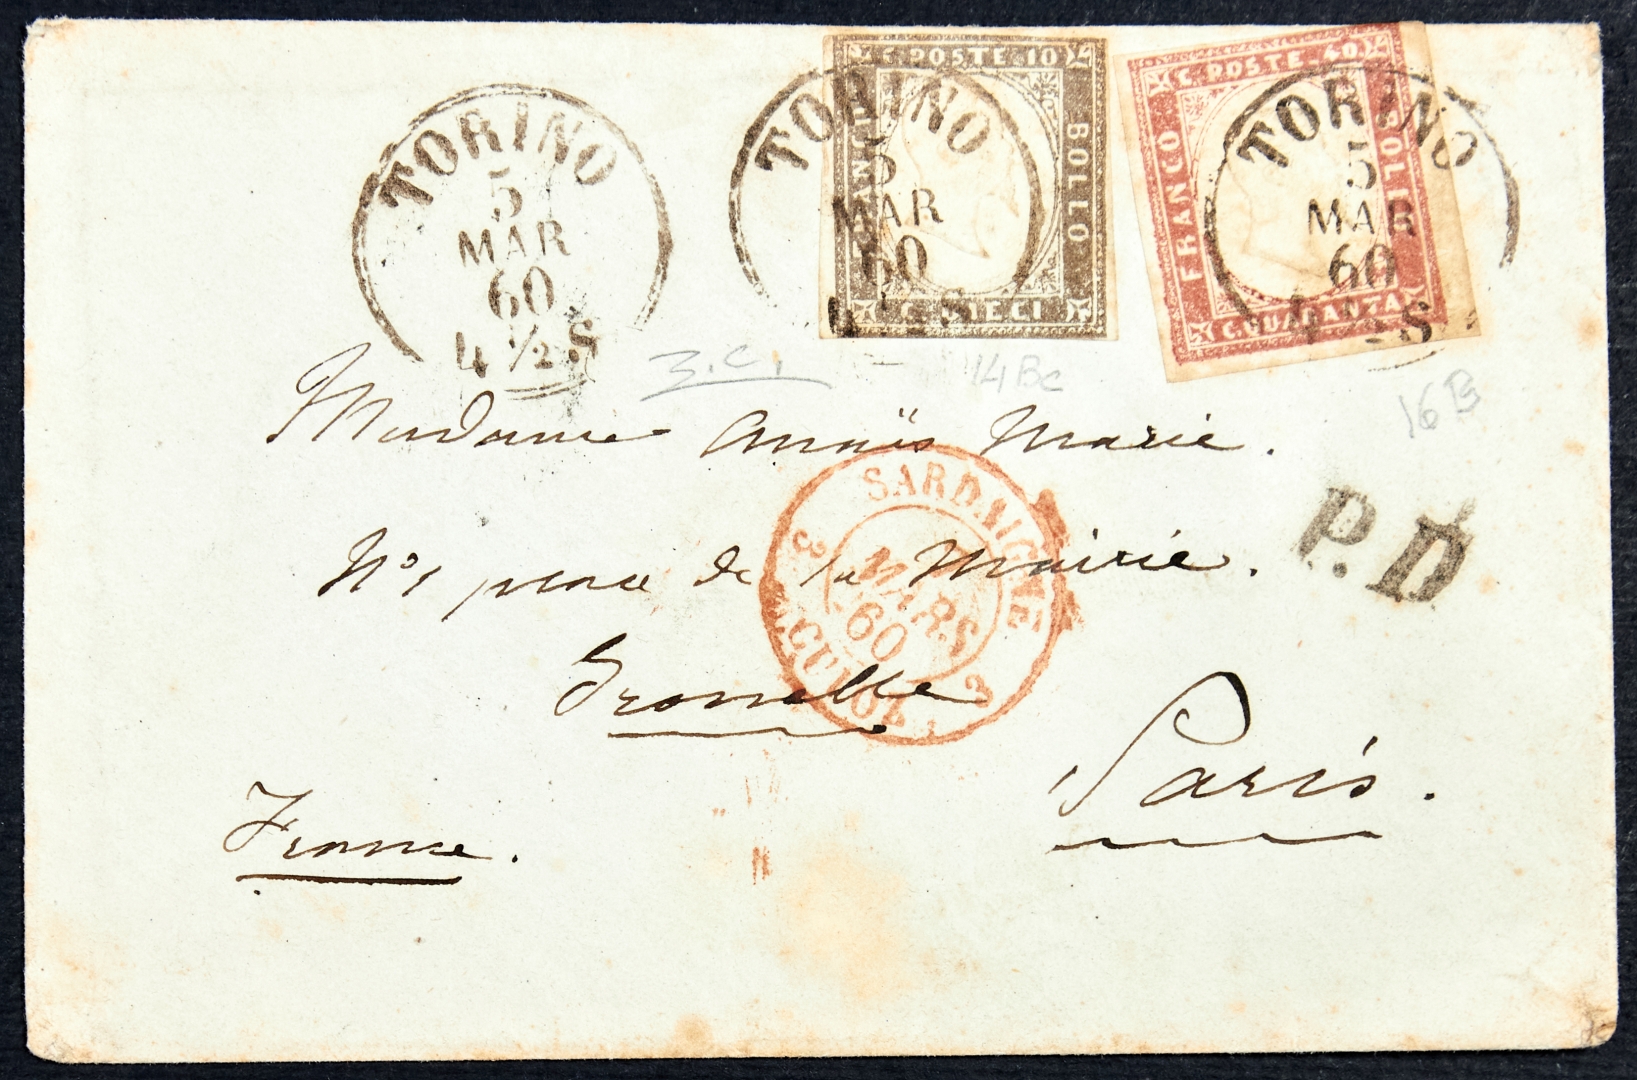 TORINO
5
MAR
60
4 ½ S
C. POSTE. 10
FRANCO
BOLLO
C. DIECI
TORINO
5
MAR
60
4 ½ S
C. POSTE. 40
FRANCO
BOLLO
C. QUARANTA
TORINO
5
MAR
60
4 ½ S
3.C.
14Bc
16B
Madame Anaïs Marie.
N°1 place de la Mairie.
Grenelle
Paris.
France.
SARDAIGNE
MARS
60
3 CULOZ 3
P.D